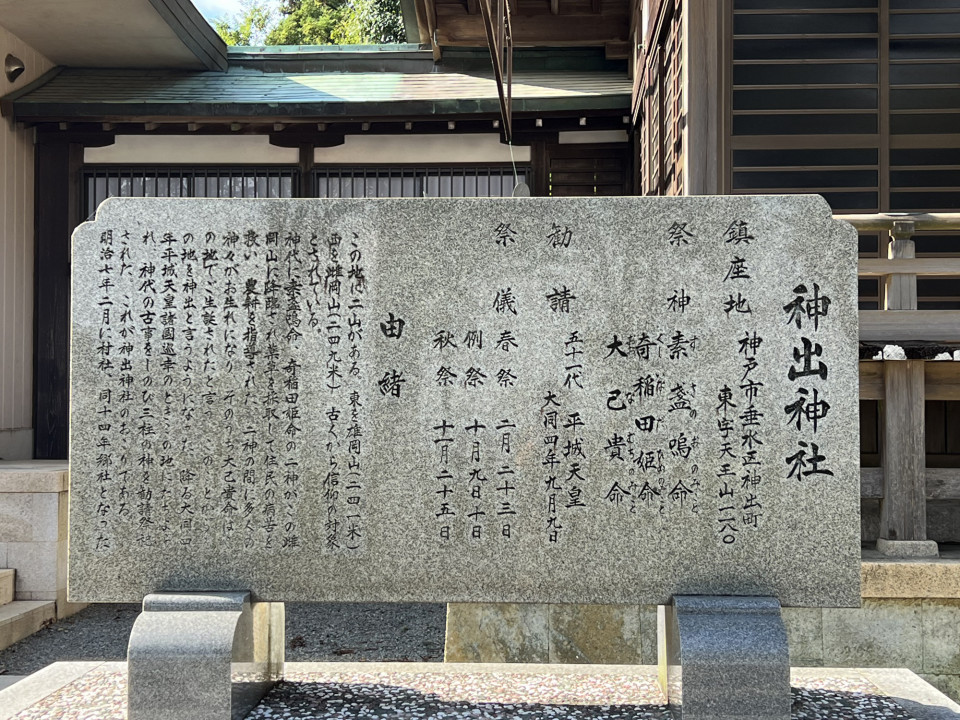 神出神社
鎮座地 神戸市垂水区神出町
東字天王山一一八〇
祭神 素盞嗚命
すさのおのみこと
奇稲田姫命
くしいなだひめのみこと
大己貴命
おおなむちのみこと
勧請 五十一代 平城天皇
大同四年九月九日
祭儀 春祭 二月二十三日
例祭 十月九日十日
秋祭 十一月二十五日
由緒
この地に二山がある。東を雄岡山(二四一米)
西を雌岡山(二四九米) 古くから信仰の対象
とされている。
神代に素盞嗚命 奇稲田姫命の二神がこの雌
岡山に降臨され薬草を採取して住民の病苦を
救い、農耕を指導された。二神の間に多くの
神々がお生れになり、そのうち大己貴命は
の地でご生誕されたと言う。このことから
の地を神出と言うようになった。降る大同四
年平城天皇諸國巡幸のときこの地にたちよら
れ、神代の古事をしのび三柱の神を勧請祭祀
された。これが神出神社のおこりである。
明治七年二月に村社、同十四年郷社となった